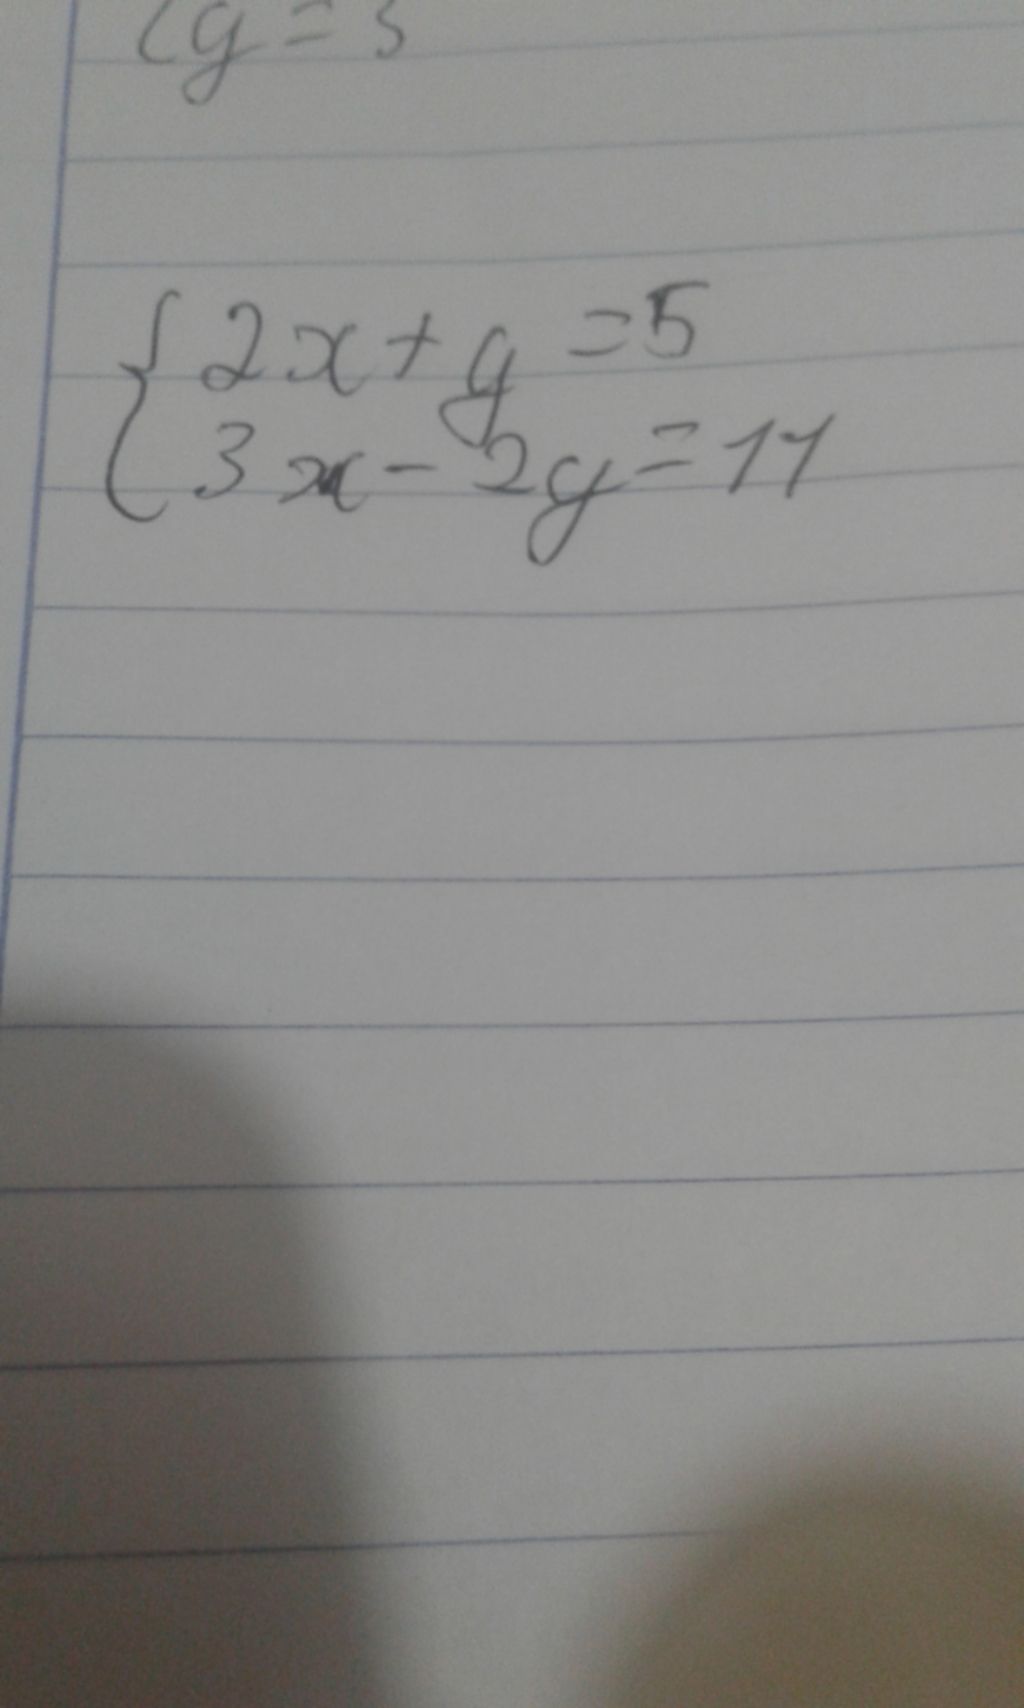 y = 3
2x + y = 5
3x - 2y = 11